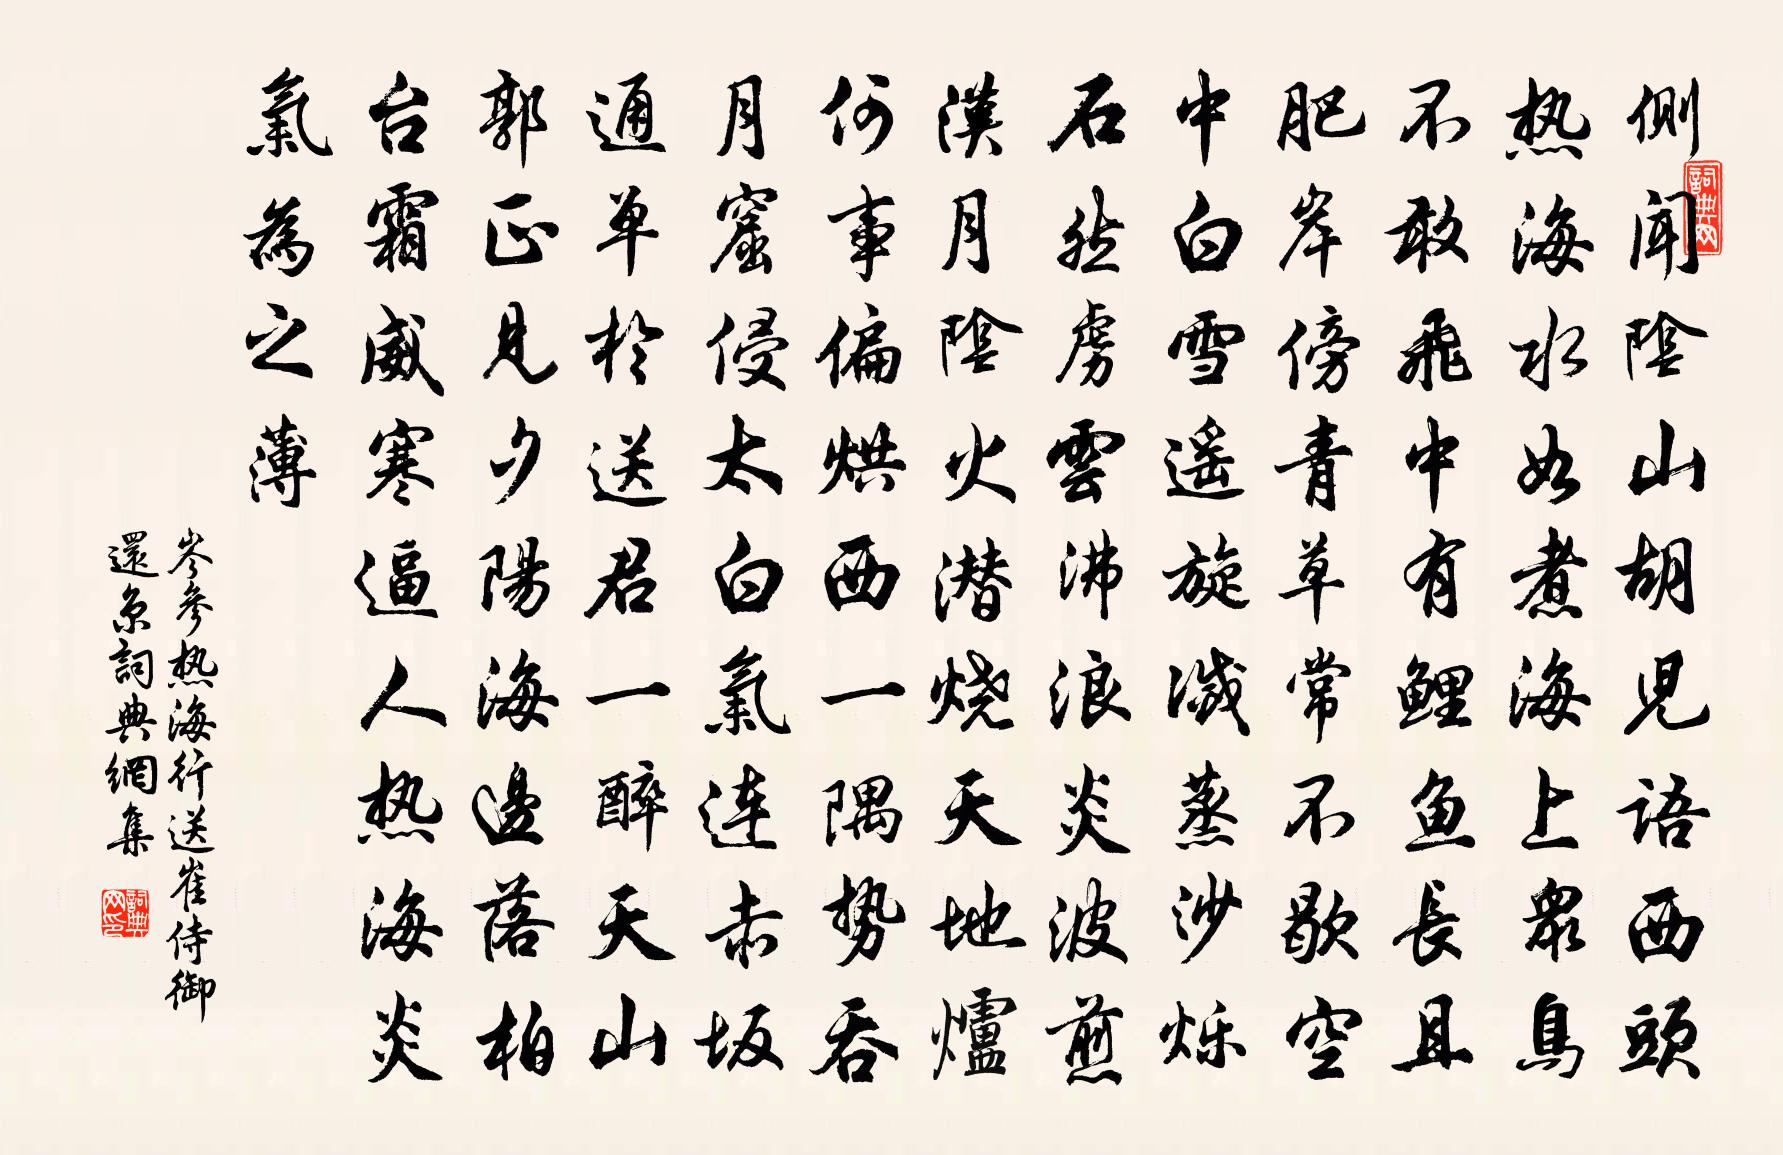 側聞陰山胡児語西頭
热海水如煮海上眾鳥
不敢飛中有鯉魚長且
肥岸傍青草常不歇空
中白雪遥旋滅蒸沙烁
石然虜雲沸浪炎波煎
漢月陰火潜烧天地爐
何事偏烘西一隅势吞
月窟侵太白氣連赤坂
通单於送君一醉天山
郭正見夕陽海邊落柏
台霜威寒逼人热海炎
氣為之薄
岑參热海行送崔侍御
還京詞典網集
詞典网
詞典网印